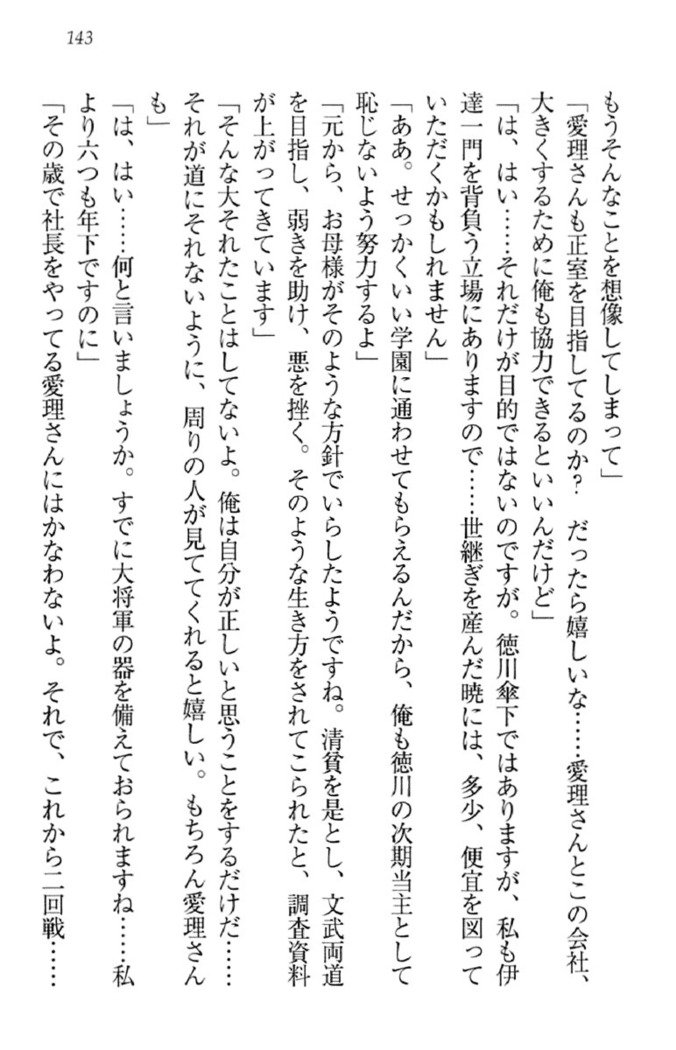 143
もうそんなことを想像してしまって」
「愛理さんも正室を目指してるのか？　だったら嬉しいな……愛理さんとこの会社、
大きくするために俺も協力できるといいんだけど」
「は、はい……それだけが目的ではないのですが。徳川傘下ではありますが、私も伊
達一門を背負う立場にありますので……世継ぎを産んだ暁には、多少、便宜を図って
いただくかもしれません」
「ああ。せっかくいい学園に通わせてもらえるんだから、俺も徳川の次期当主として
恥じないよう努力するよ」
「元から、お母様がそのような方針でいらしたようですね。清貧を是とし、文武両道
を目指し、弱きを助け、悪を挫く。そのような生き方をされてこられたと、調査資料
が上がってきています」
「そんな大それたことはしてないよ。俺は自分が正しいと思うことをするだけだ……
それが道にそれないように、周りの人が見ててくれると嬉しい。もちろん愛理さん
も」
「は、はい……何と言いましょうか。すでに大将軍の器を備えておられますね……私
より六つも年下ですのに」
「その歳で社長をやってる愛理さんにはかなわないよ。それで、これから二回戦……